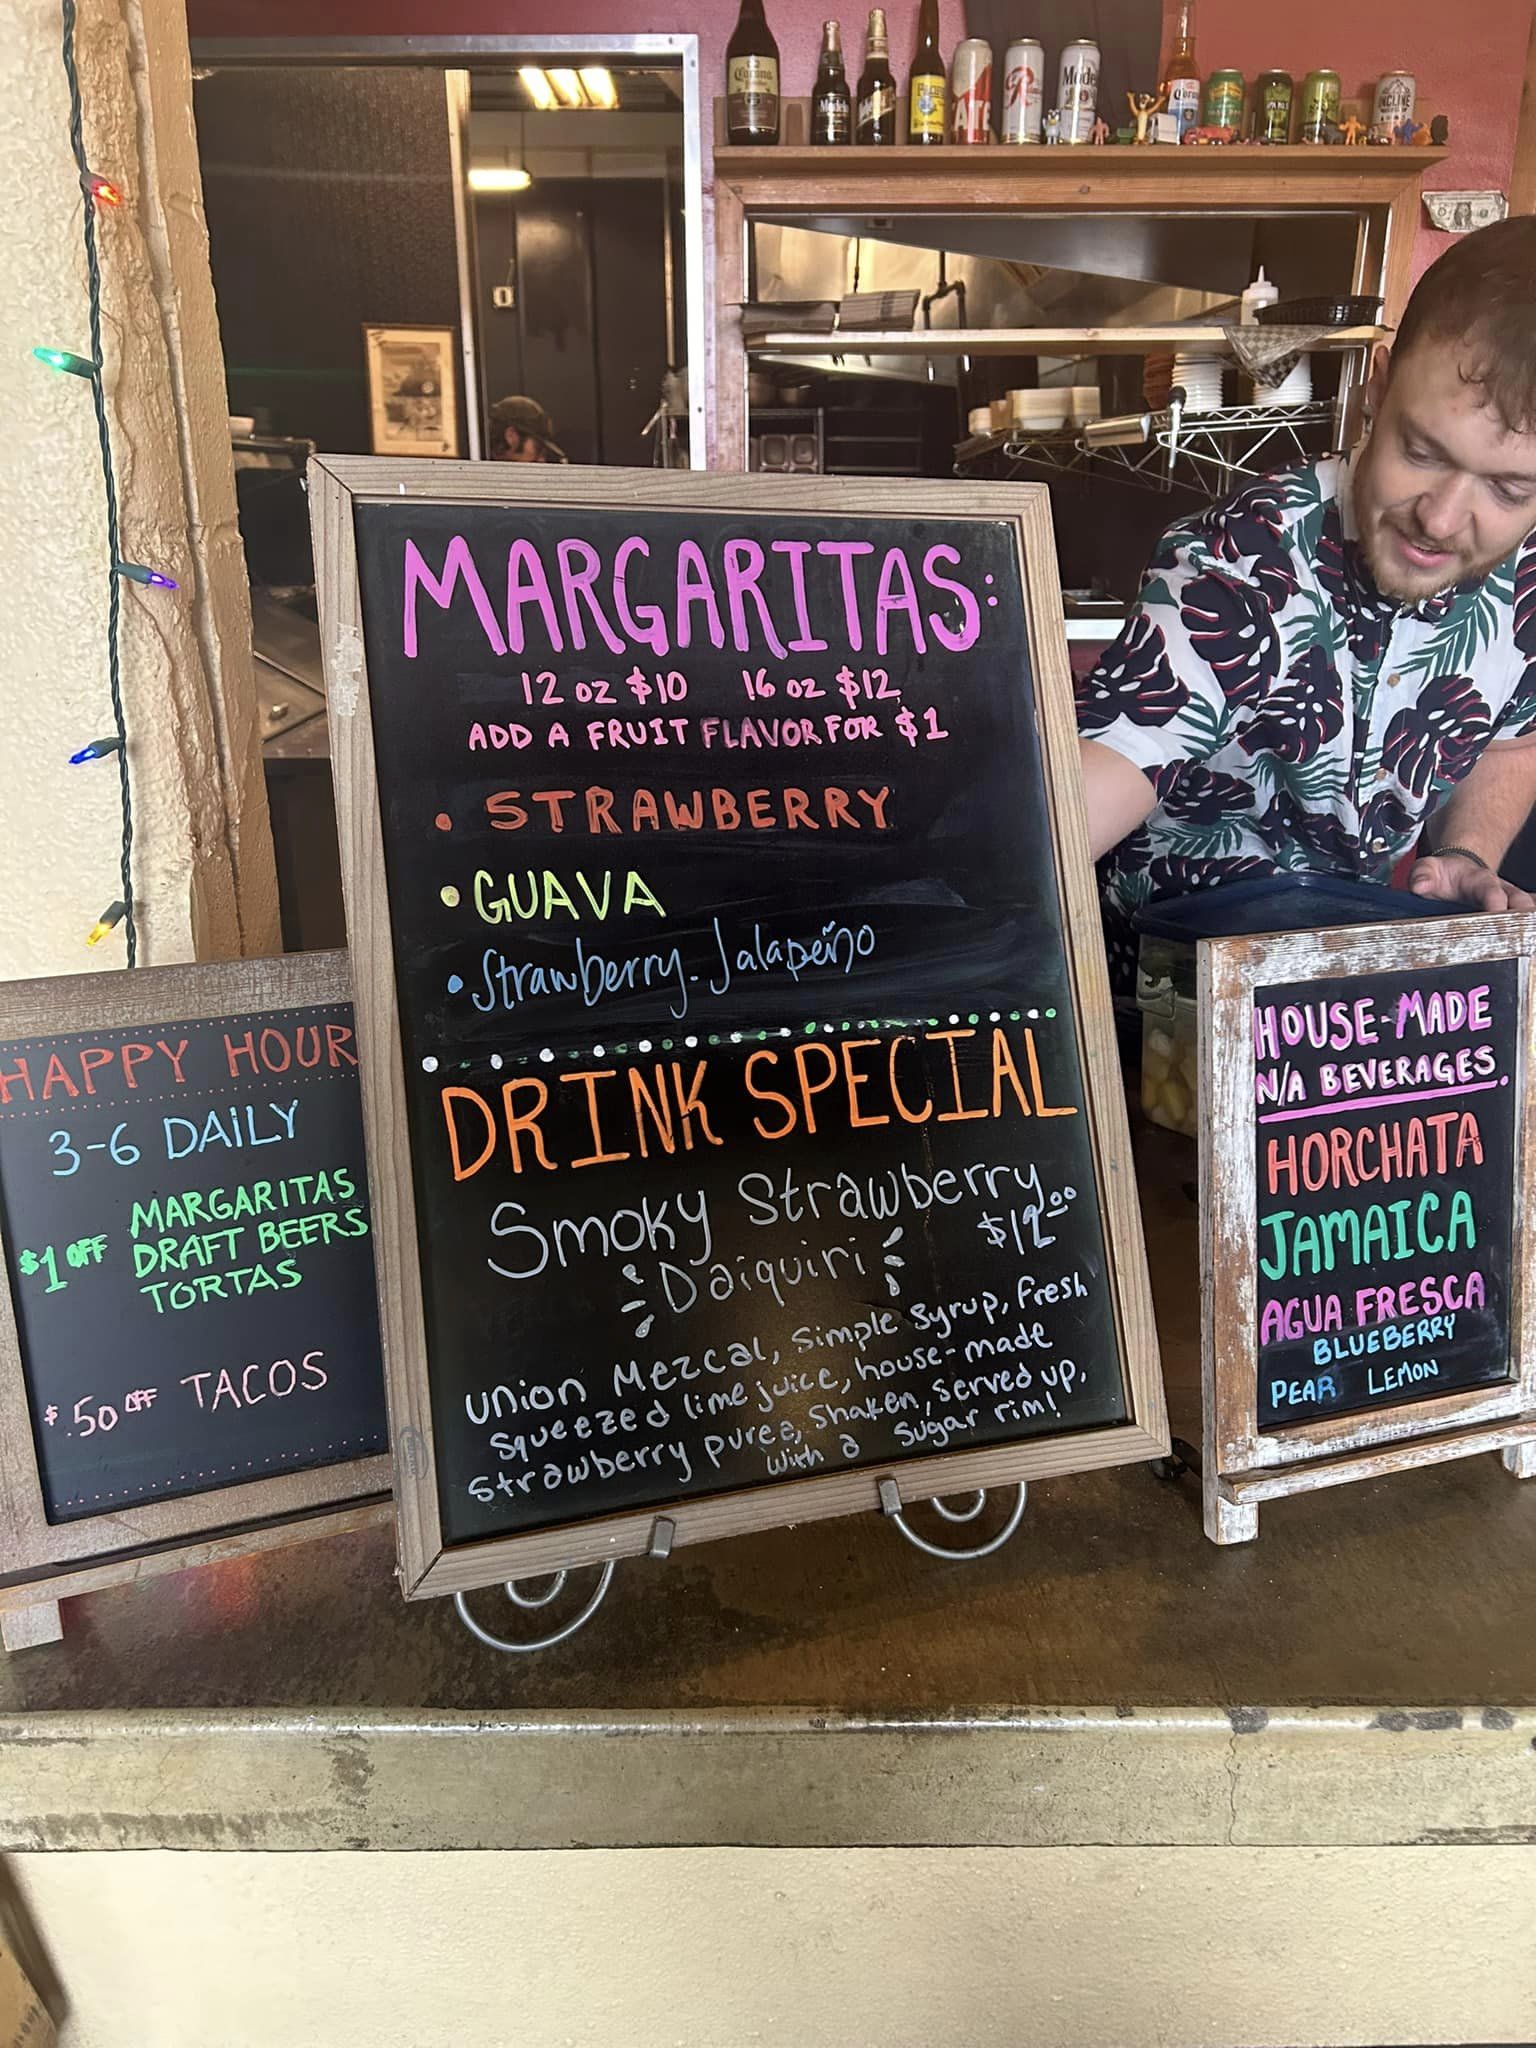 Corona
Modelo
Pacifico
Modelo
Corona
INCLINE
MARGARITAS:
12 oz $10 16 oz $12
ADD A FRUIT FLAVOR FOR $1
• STRAWBERRY
• GUAVA
• Strawberry-Jalapeño
DRINK SPECIAL
Smoky Strawberry
Daiquiri $12.00
union Mezcal, simple syrup, fresh
squeezed lime juice, house-made
strawberry purea, shaken, served up,
with a sugar rim!
HAPPY HOUR
3-6 DAILY
MARGARITAS
$1 OFF DRAFT BEERS
TORTAS
$.50 OFF TACOS
HOUSE-MADE
N/A BEVERAGES.
HORCHATA
JAMAICA
AGUA FRESCA
BLUEBERRY
PEAR LEMON